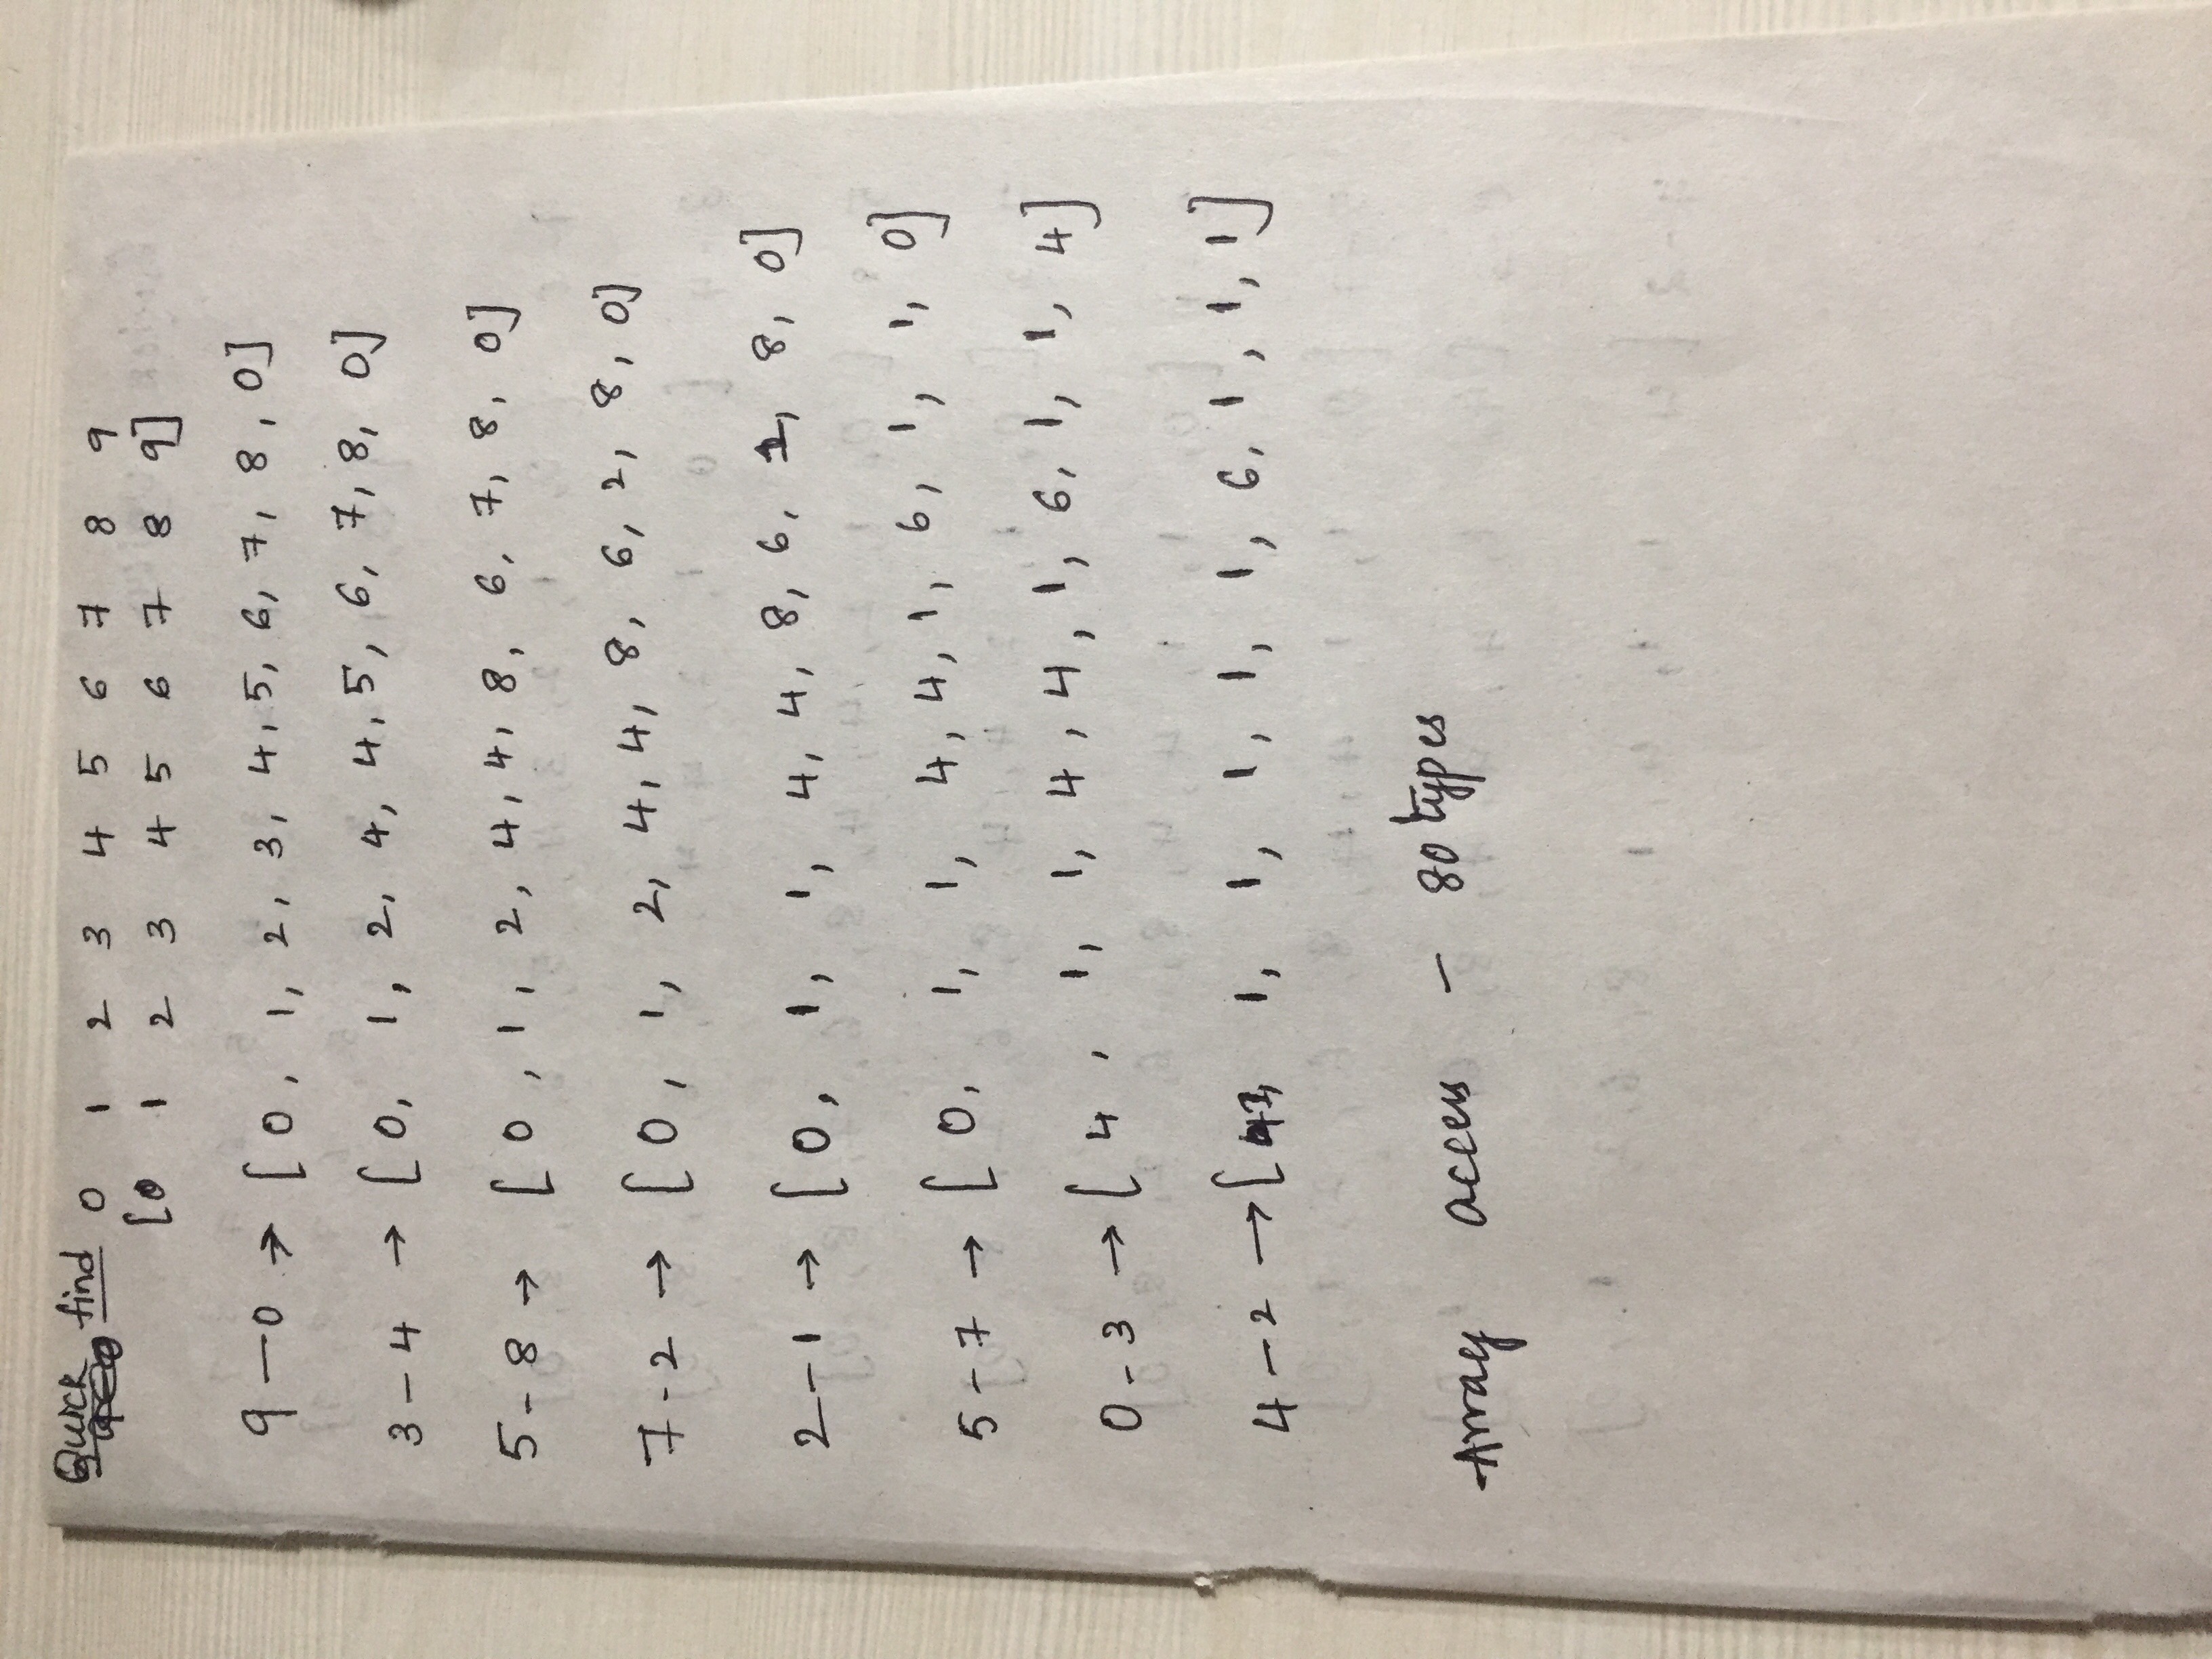 Quick find 0 1 2 3 4 5 6 7 8 9
[0 1 2 3 4 5 6 7 8 9]
9 - 0 → [0, 1, 2, 3, 4, 5, 6, 7, 8, 0]
3 - 4 → [0, 1, 2, 4, 4, 5, 6, 7, 8, 0]
5 - 8 → [0, 1, 2, 4, 4, 8, 6, 7, 8, 0]
7 - 2 → [0, 1, 2, 4, 4, 8, 6, 2, 8, 0]
2 - 1 → [0, 1, 1, 4, 4, 8, 6, 1, 8, 0]
5 - 7 → [0, 1, 1, 4, 4, 1, 6, 1, 1, 0]
0 - 3 → [4, 1, 1, 4, 4, 1, 6, 1, 1, 4]
4 - 2 → [1, 1, 1, 1, 1, 1, 6, 1, 1, 1]
Array access - 80 types